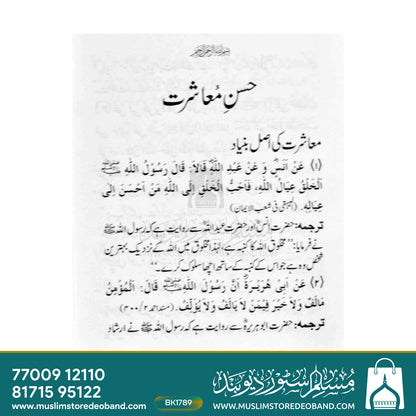 بسم اللہ الرحمن الرحیم
حسنِ معاشرت
معاشرت کی اصل بنیاد
(۱) عَنْ اَنَسٍؓ وَ عَنْ عَبْدِ اللّٰهِؓ قَالَا: قَالَ رَسُوْلُ اللّٰهِ ﷺ
اَلْخَلْقُ عِيَالُ اللّٰهِ، فَاَحَبُّ الْخَلْقِ اِلَى اللّٰهِ مَنْ اَحْسَنَ اِلٰى
عِيَالِهٖ. (البیہقی فی شعب الایمان)
ترجمہ: حضرت انسؓ اور حضرت عبداللہؓ سے روایت ہے کہ رسول اللہ ﷺ
نے فرمایا: ”مخلوق اللہ کا کنبہ ہے، لہٰذا مخلوق میں اللہ کے نزدیک بہترین
شخص وہ ہے جو اس کے کنبہ کے ساتھ اچھا سلوک کرے۔“
(۲) عَنْ اَبِیْ هُرَيْرَةَؓ اَنَّ رَسُوْلَ اللّٰهِ ﷺ قَالَ: اَلْمُؤْمِنُ
مَاْلَفٌ وَلَا خَيْرَ فِيْمَنْ لَا يَاْلَفُ وَلَا يُؤْلَفُ. (مسند احمد ۲/۴۰۰)
ترجمہ: حضرت ابوہریرہؓ سے روایت ہے کہ رسول اللہ ﷺ نے ارشاد
77009 12110
81715 95122
www.muslimstoredeoband.com
BK1789
مسلم سٹور دیوبند
WWW.MUSLIMSTOREDEOBAND.COM